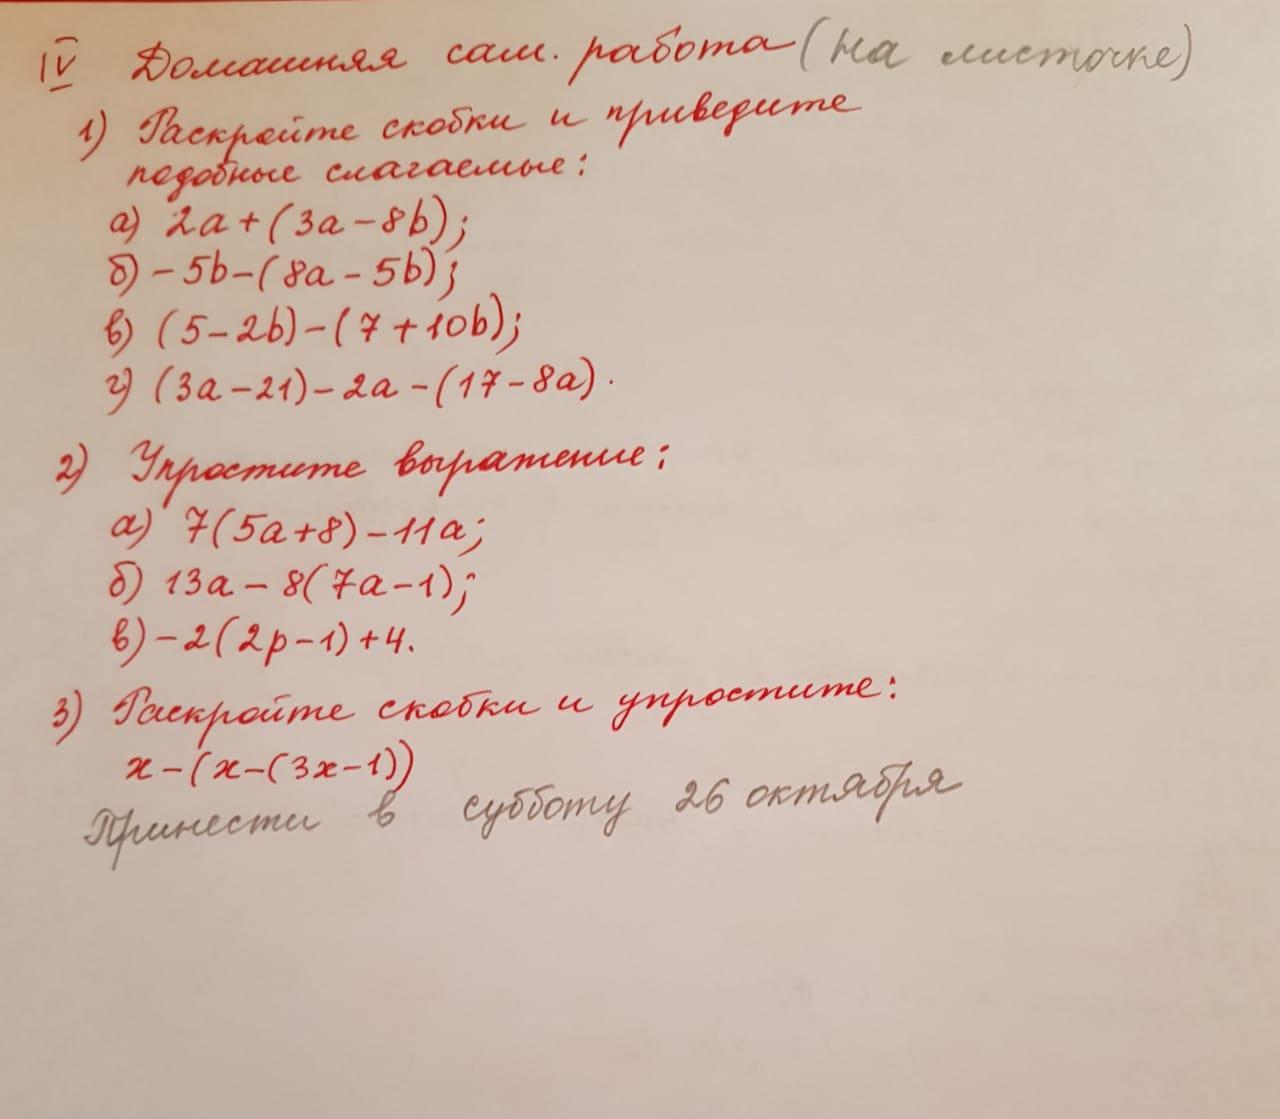 IV Домашняя сам. работа (на листочке)
1) Раскройте скобки и приведите
подобные слагаемые:
а) 2a+(3a-8b);
б) -5b-(8a-5b);
в) (5-2b)-(7+10b);
г) (3a-21)-2a-(17-8a).
2) Упростите выражение:
а) 7(5a+8)-11a;
б) 13a-8(7a-1);
в) -2(2p-1)+4.
3) Раскройте скобки и упростите:
x-(x-(3x-1))
Принести в субботу 26 октября